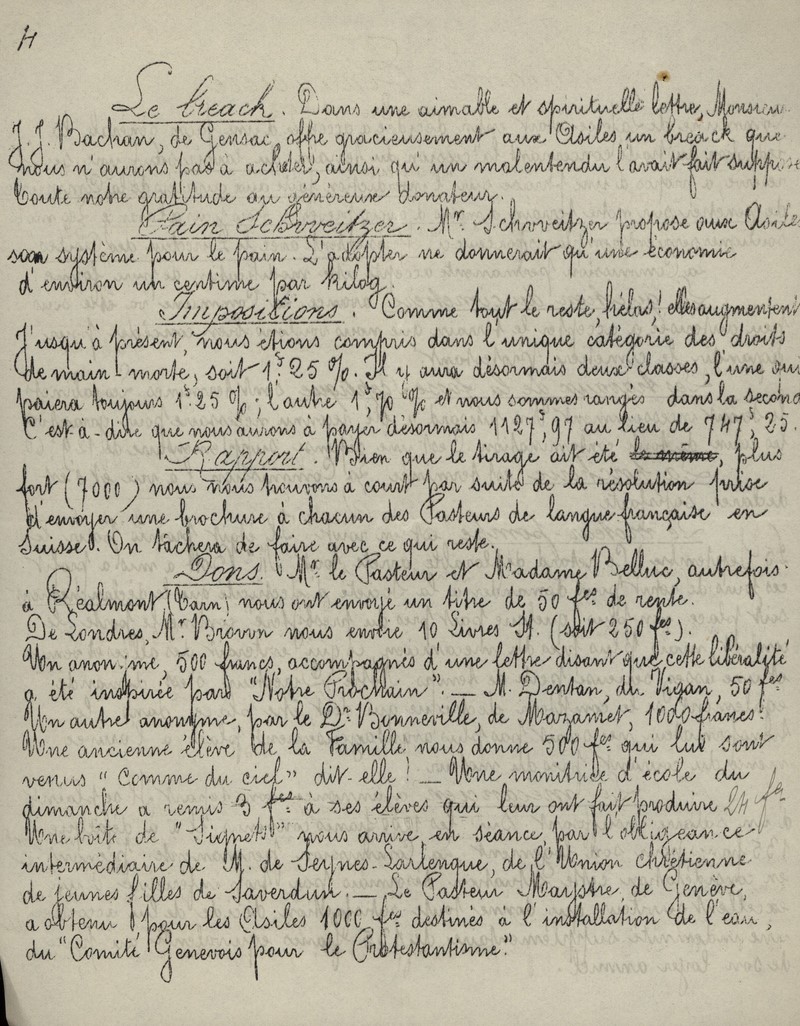 4
Le break. Dans une aimable et spirituelle lettre, Monsieur
J. J. Bachan, de Gensac, offre gracieusement aux Asiles un break que
nous n'aurons pas à acheter, ainsi qu'un malentendu l'avait fait suppose
Toute notre gratitude au généreux donateur.
Pain Schweitzer. Mr. Schweitzer propose aux Asiles
son système pour le pain. L'adopter ne donnerait qu'une économie
d'environ un centime par kilog.
Impositions. Comme tout le reste, hélas! elles augmentent
Jusqu'à présent, nous étions compris dans l'unique catégorie des droits
de main-morte, soit 1f.25 %. Il y aura désormais deux classes, l'une qui
paiera toujours 1f.25 %; l'autre 1f,70 % et nous sommes rangés dans la second
C'est-à-dire que nous aurons à payer désormais 1127f,97 au lieu de 747f,25.
Rapport. Bien que le tirage ait été le même, plus
fort (7000) nous nous trouvons à court par suite de la résolution prise
d'envoyer une brochure à chacun des Pasteurs de langue française en
Suisse. On tâchera de faire avec ce qui reste.
Dons. Mr. le Pasteur et Madame Belluc, autrefois
à Réalmont (Tarn) nous ont envoyé un titre de 50 fcs de rente.
De Londres, Mr Brown nous envoie 10 Livres St. (soit 250 fcs).
Un anonyme, 500 francs, accompagnés d'une lettre disant que cette libéralité
a été inspirée par "Notre Prochain". — M. Dentan, du Vigan, 50 fcs
Un autre anonyme, par le Dr Bonneville, de Mazamet, 1000 francs.
Une ancienne élève de la Famille nous donne 500 fcs qui lui sont
venus "Comme du ciel" dit-elle! — Une monitrice d'école du
dimanche a remis 3 fcs à ses élèves qui leur ont fait produire 24 fcs
Une boîte de "Signets" nous arrive, en séance, par l'obligeance
intermédiaire de M. de Seynes-Larlenque, de l'Union chrétienne
de jeunes filles de Saverdun. — Le Pasteur Maystre, de Genève,
a obtenu pour les Asiles 1000 fcs destinés à l'installation de l'eau,
du "Comité Genevois pour le Protestantisme."